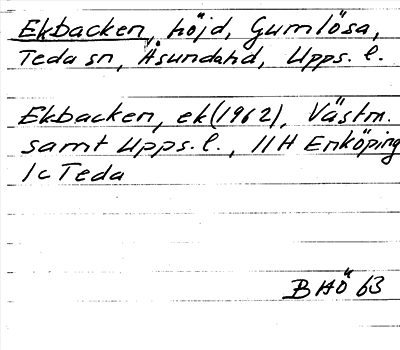 Ekbacken, höjd, Gumlösa,
Teda sn, Åsundahd, Upps. l.
Ekbacken, ek (1962), Västm.
samt Upps. l., 11H Enköping
1c Teda
BHÖ 63